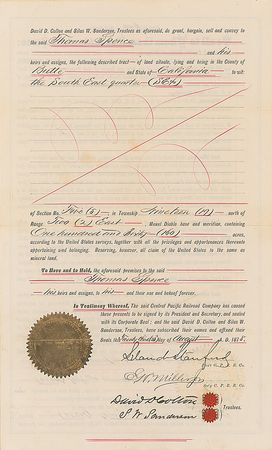 David D. Colton and Silas W. Sanderson, Trustees as aforesaid, do grant, bargain, sell and convey to
the said Thomas Spence
and his
heirs and assigns, the following described tract of land situate, lying and being in the County of
Butte and State of California to wit:
the South East quarter (SE¼)
of Section No. Five (5) in Township Nineteen (19) north of
Range Two (2) East Mount Diablo base and meridian, containing
One hundred and Sixty (160) acres,
according to the United States surveys, together with all the privileges and appurtenances thereunto
appertaining and belonging. Reserving, however, all claim of the United States to the same as
mineral land.
To Have and to Hold, the aforesaid premises to the said
Thomas Spence
his heirs and assigns, to his and their use and behoof forever.
In Testimony Whereof, The said Central Pacific Railroad Company has caused
these presents to be signed by its President and Secretary, and sealed
with its Corporate Seal; and the said David D. Colton and Silas W.
Sanderson, Trustees, have subscribed their names and affixed their
Seals this day of August A. D. 187
Leland Stanford
Pres't C. P. R. R. Co.
E H Miller Jr
Sec'y C. P. R. R. Co.
David D Colton
S W Sanderson Trustees.